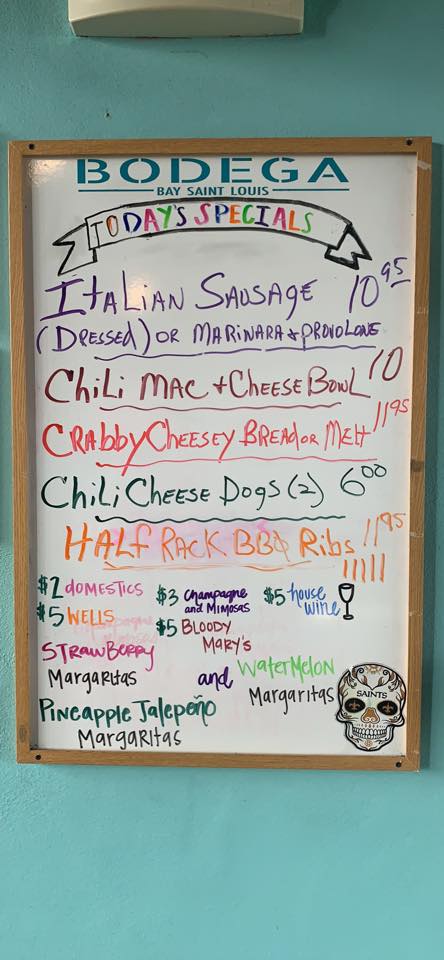 BODEGA
BAY SAINT LOUIS
TODAY'S SPECIALS
ItaLiAN SAUSAGE 10 95
(DRESSED) OR MARINARA + PROVOLONE
CHiLi MAC + CHEESE BOWL 10
CRABBY CHEESEY BREAD OR MELT 11 95
CHiLi CHEESE DOGS (2) 6 00
HALF RACK BBQ Ribs 11 95
$2 DOMESTICS
$5 WELLS
$3 Champagne and MIMOSAS
$5 BLOODY MARY'S
$5 house wine
STRAWBERRY MARGARItAS
and WATERMELON MARGARITAS
PINEAPPLE JALEPEÑO MARGARITAS
SAINTS